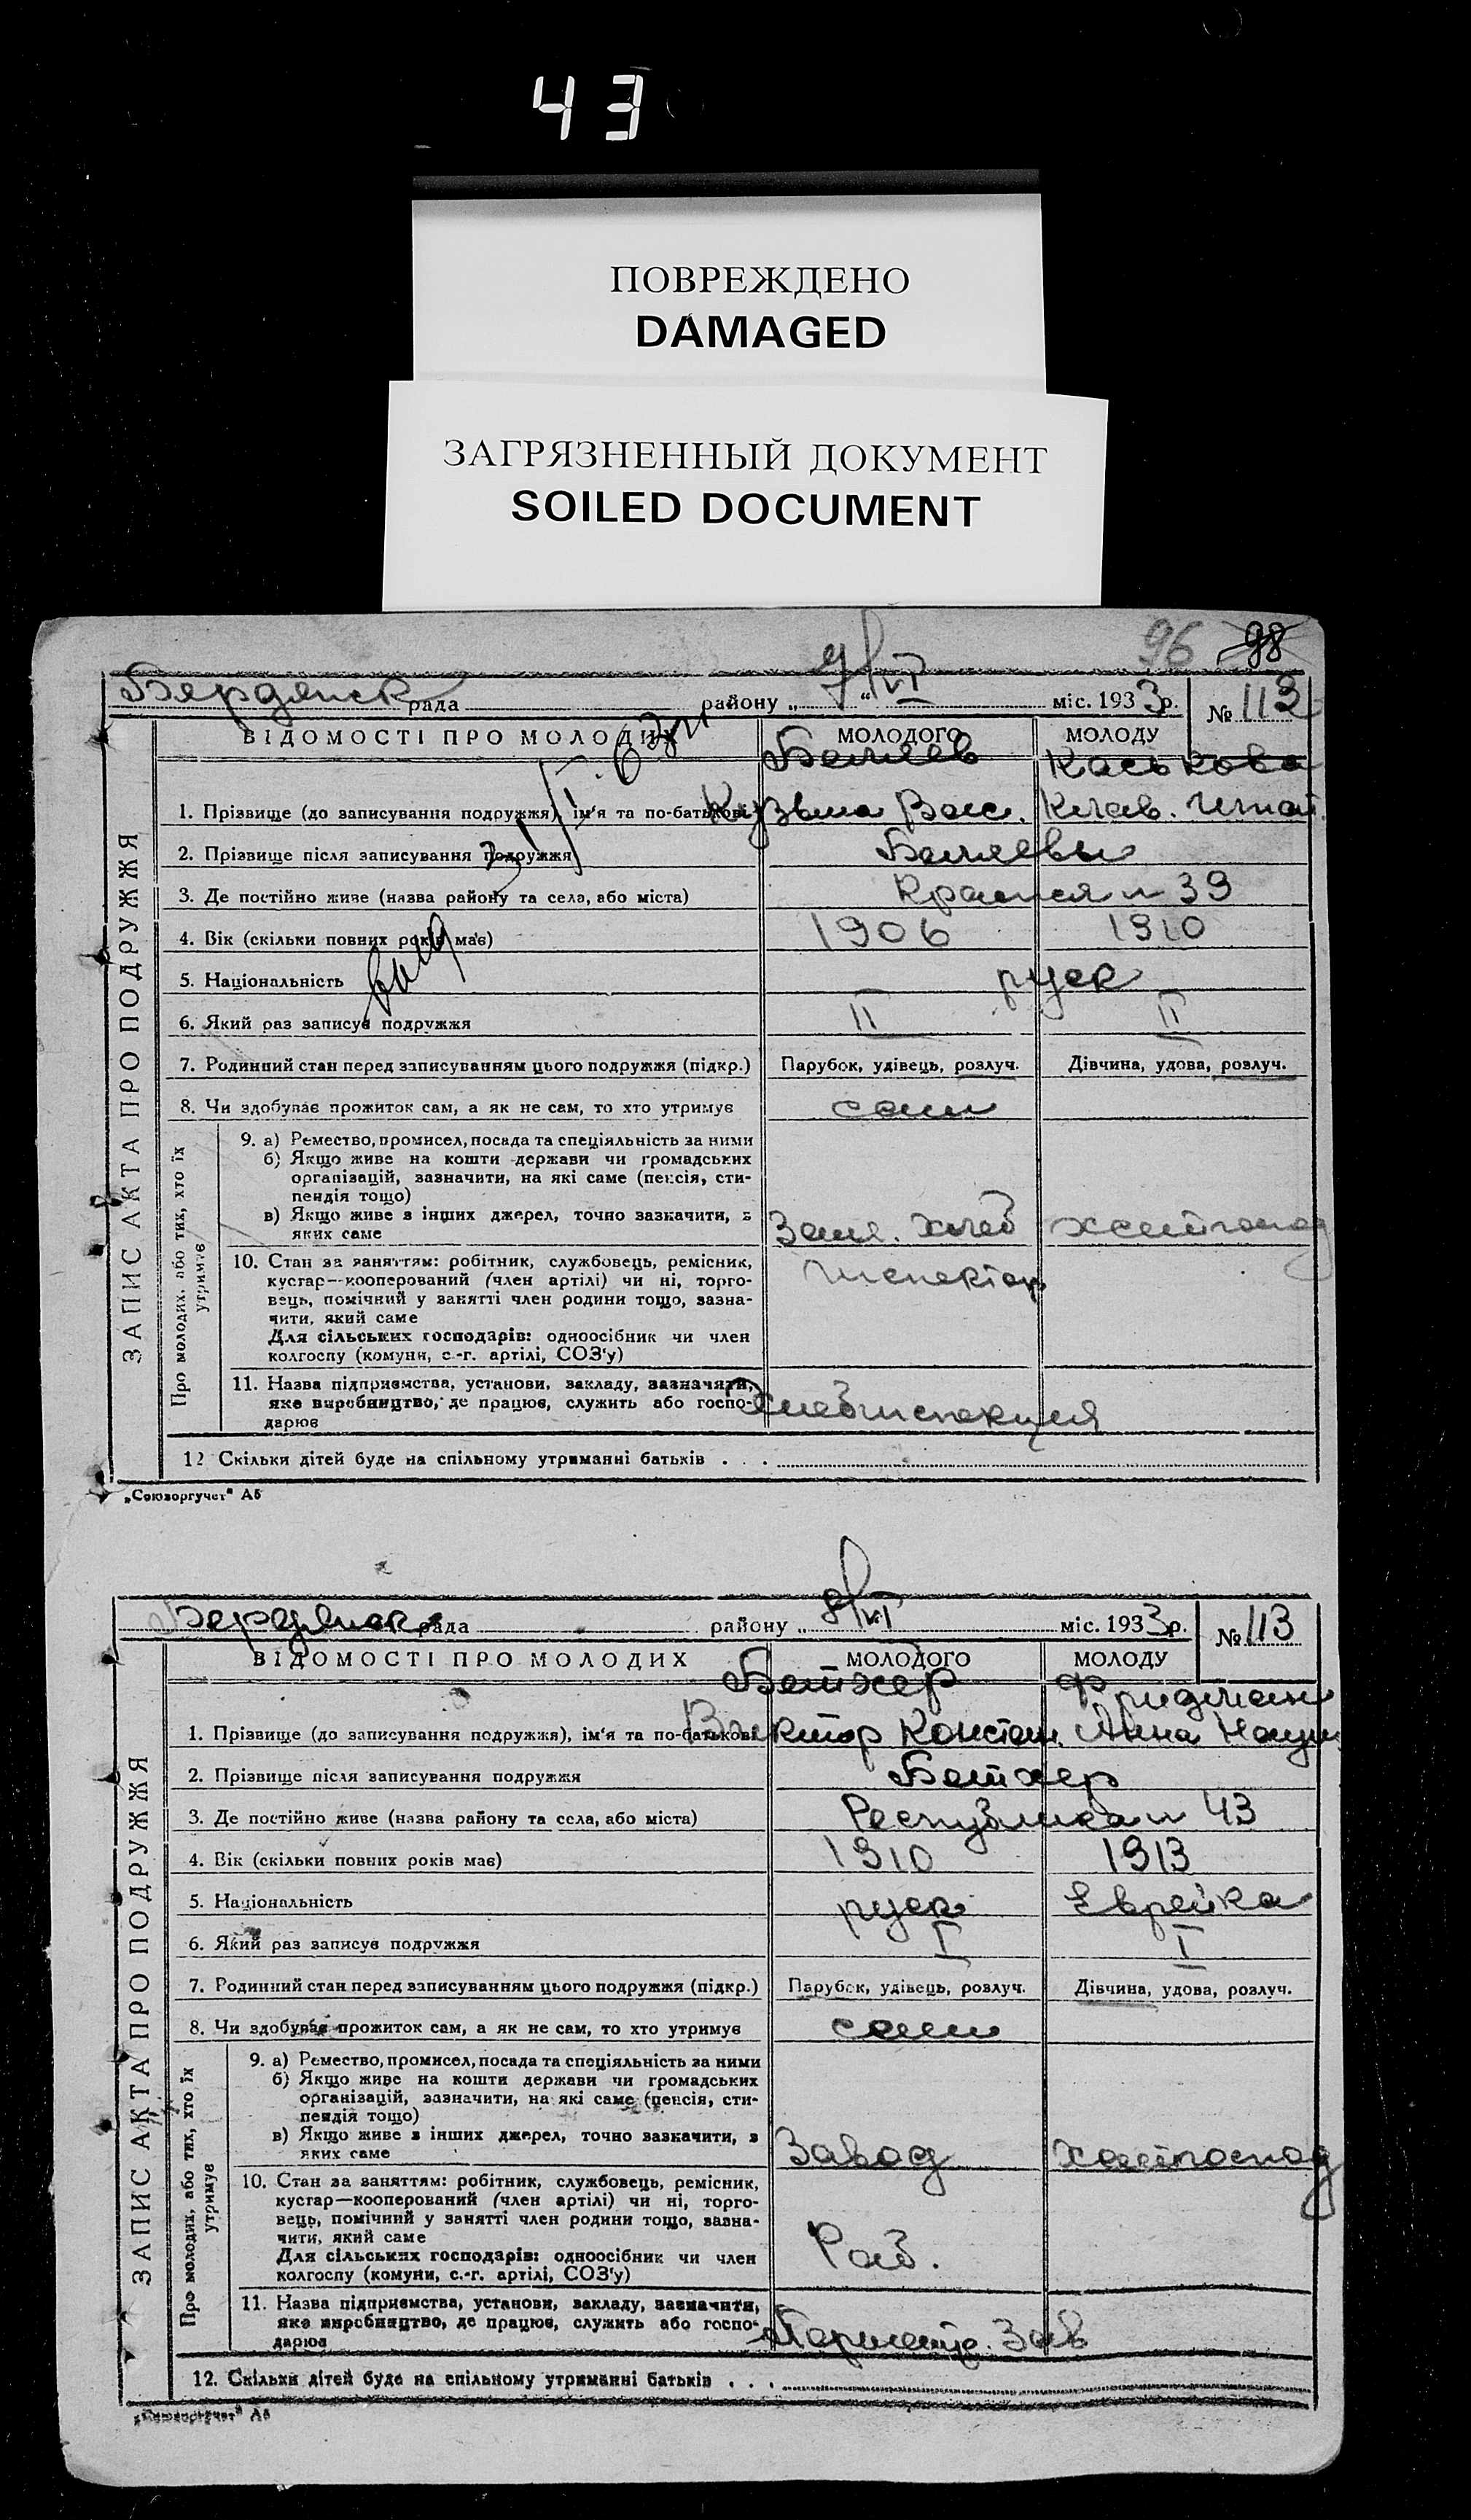 43
ПОВРЕЖДЕНО
DAMAGED
ЗАГРЯЗНЕННЫЙ ДОКУМЕНТ
SOILED DOCUMENT
96 98
Бердянск рада району „ 9/VI “ міс. 1933р. № 112
ВІДОМОСТІ ПРО МОЛОДИХ МОЛОДОГО МОЛОДУ
ЗАПИС АКТА ПРО ПОДРУЖЖЯ
Беляев Каськова
1. Прізвище (до записування подружжя), ім'я та по-батькові Кузьма Вас. Клав. Игнат.
2. Прізвище після записування подружжя Беляевы
3. Де постійно живе (назва району та села, або міста) Красная 39
4. Вік (скільки повних років має) 1906 1910
5. Національність руск
6. Який раз записує подружжя II II
7. Родинний стан перед записуванням цього подружжя (підкр.) Парубок, удівець, розлуч. Дівчина, удова, розлуч.
8. Чи здобуває прожиток сам, а як не сам, то хто утримує сам
Про молодих, або тих, хто їх утримує
9. а) Ремество, промисел, посада та спеціяльність за ними
б) Якщо живе на кошти держави чи громадських
організацій, зазначити, на які саме (пенсія, сти-
пендія тощо)
в) Якщо живе з інших джерел, точно зазначити, з
яких саме Зам. Хлеб домгоспод
10. Стан за заняттям: робітник, службовець, ремісник, инспектор
кустар—кооперований (член артілі) чи ні, торго-
вець, помічний у занятті член родини тощо, зазна-
чити, який саме
Для сільських господарів: одноосібник чи член
колгоспу (комуни, с.-г. артілі, СОЗ'у)
11. Назва підприємства, установи, закладу, зазначити,
яке виробництво, де працює, служить або госпо- Хлебинспекция
дарює
12 Скільки дітей буде на спільному утриманні батьків . . .
„Союзоргучет“ А5
Бердянск рада району „ 9/VI міс. 1933р. № 113
ВІДОМОСТІ ПРО МОЛОДИХ МОЛОДОГО МОЛОДУ
ЗАПИС АКТА ПРО ПОДРУЖЖЯ
Бетхер Фридман
1. Прізвище (до записування подружжя), ім'я та по-батькові Виктор Констан. Анна Наум.
2. Прізвище після записування подружжя Бетхер
3. Де постійно живе (назва району та села, або міста) Республика 43
4. Вік (скільки повних років має) 1910 1913
5. Національність руск Еврейка
6. Який раз записує подружжя I I
7. Родинний стан перед записуванням цього подружжя (підкр.) Парубок, удівець, розлуч. Дівчина, удова, розлуч.
8. Чи здобуває прожиток сам, а як не сам, то хто утримує сам
Про молодих, або тих, хто їх утримує
9. а) Ремество, промисел, посада та спеціяльність за ними
б) Якщо живе на кошти держави чи громадських
організацій, зазначити, на які саме (пенсія, сти-
пендія тощо)
в) Якщо живе з інших джерел, точно зазначити, з
яких саме Завод домгоспод
10. Стан за заняттям: робітник, службовець, ремісник,
кустар—кооперований (член артілі) чи ні, торго-
вець, помічний у занятті член родини тощо, зазна-
чити, який саме Раб.
Для сільських господарів: одноосібник чи член
колгоспу (комуни, с.-г. артілі, СОЗ'у)
11. Назва підприємства, установи, закладу, зазначити,
яке виробництво, де працює, служить або госпо- Зав
дарює
12. Скільки дітей буде на спільному утриманні батьків . . .
„Союзоргучет“ А5